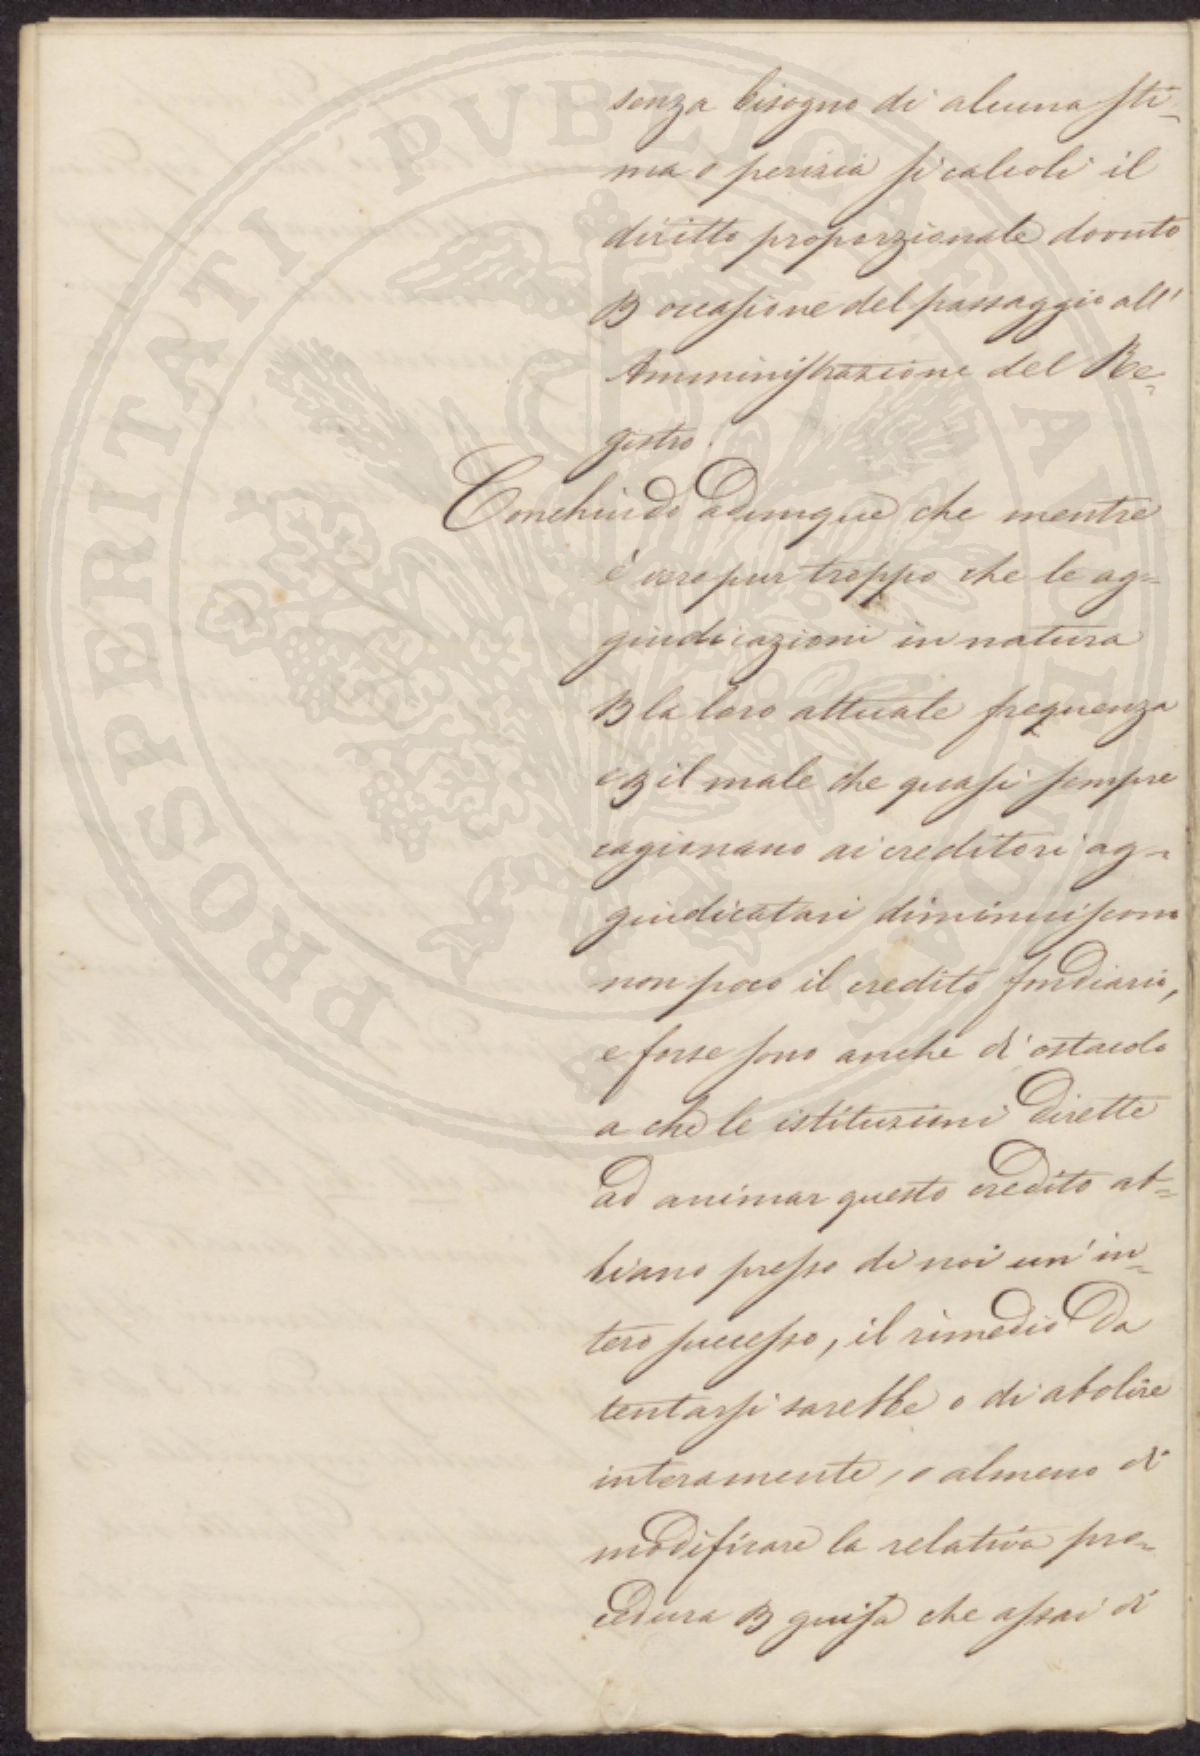 senza bisogno di alcuna sti-
ma o perizia si calcoli il
diritto proporzionale dovuto
p occasione del passaggio all'
Amministrazione del Re-
gistro.
Conchiudo adunque che mentre
è vero pur troppo che le ag=
giudicazioni in natura
p la loro attuale frequenza
e p il male che quasi sempre
cagionano ai creditori ag=
giudicatari diminuiscono
non poco il credito fondiario,
e forse sono anche di ostacolo
a che le istituzioni dirette
ad animar questo credito ab=
biano presso di noi un' in=
tero successo, il rimedio da
tentarsi sarebbe o di abolire
interamente, o almeno di
modificare la relativa pro=
cedura p guisa che assai di
PROSPERITATI PVBLICAE AVGENDAE